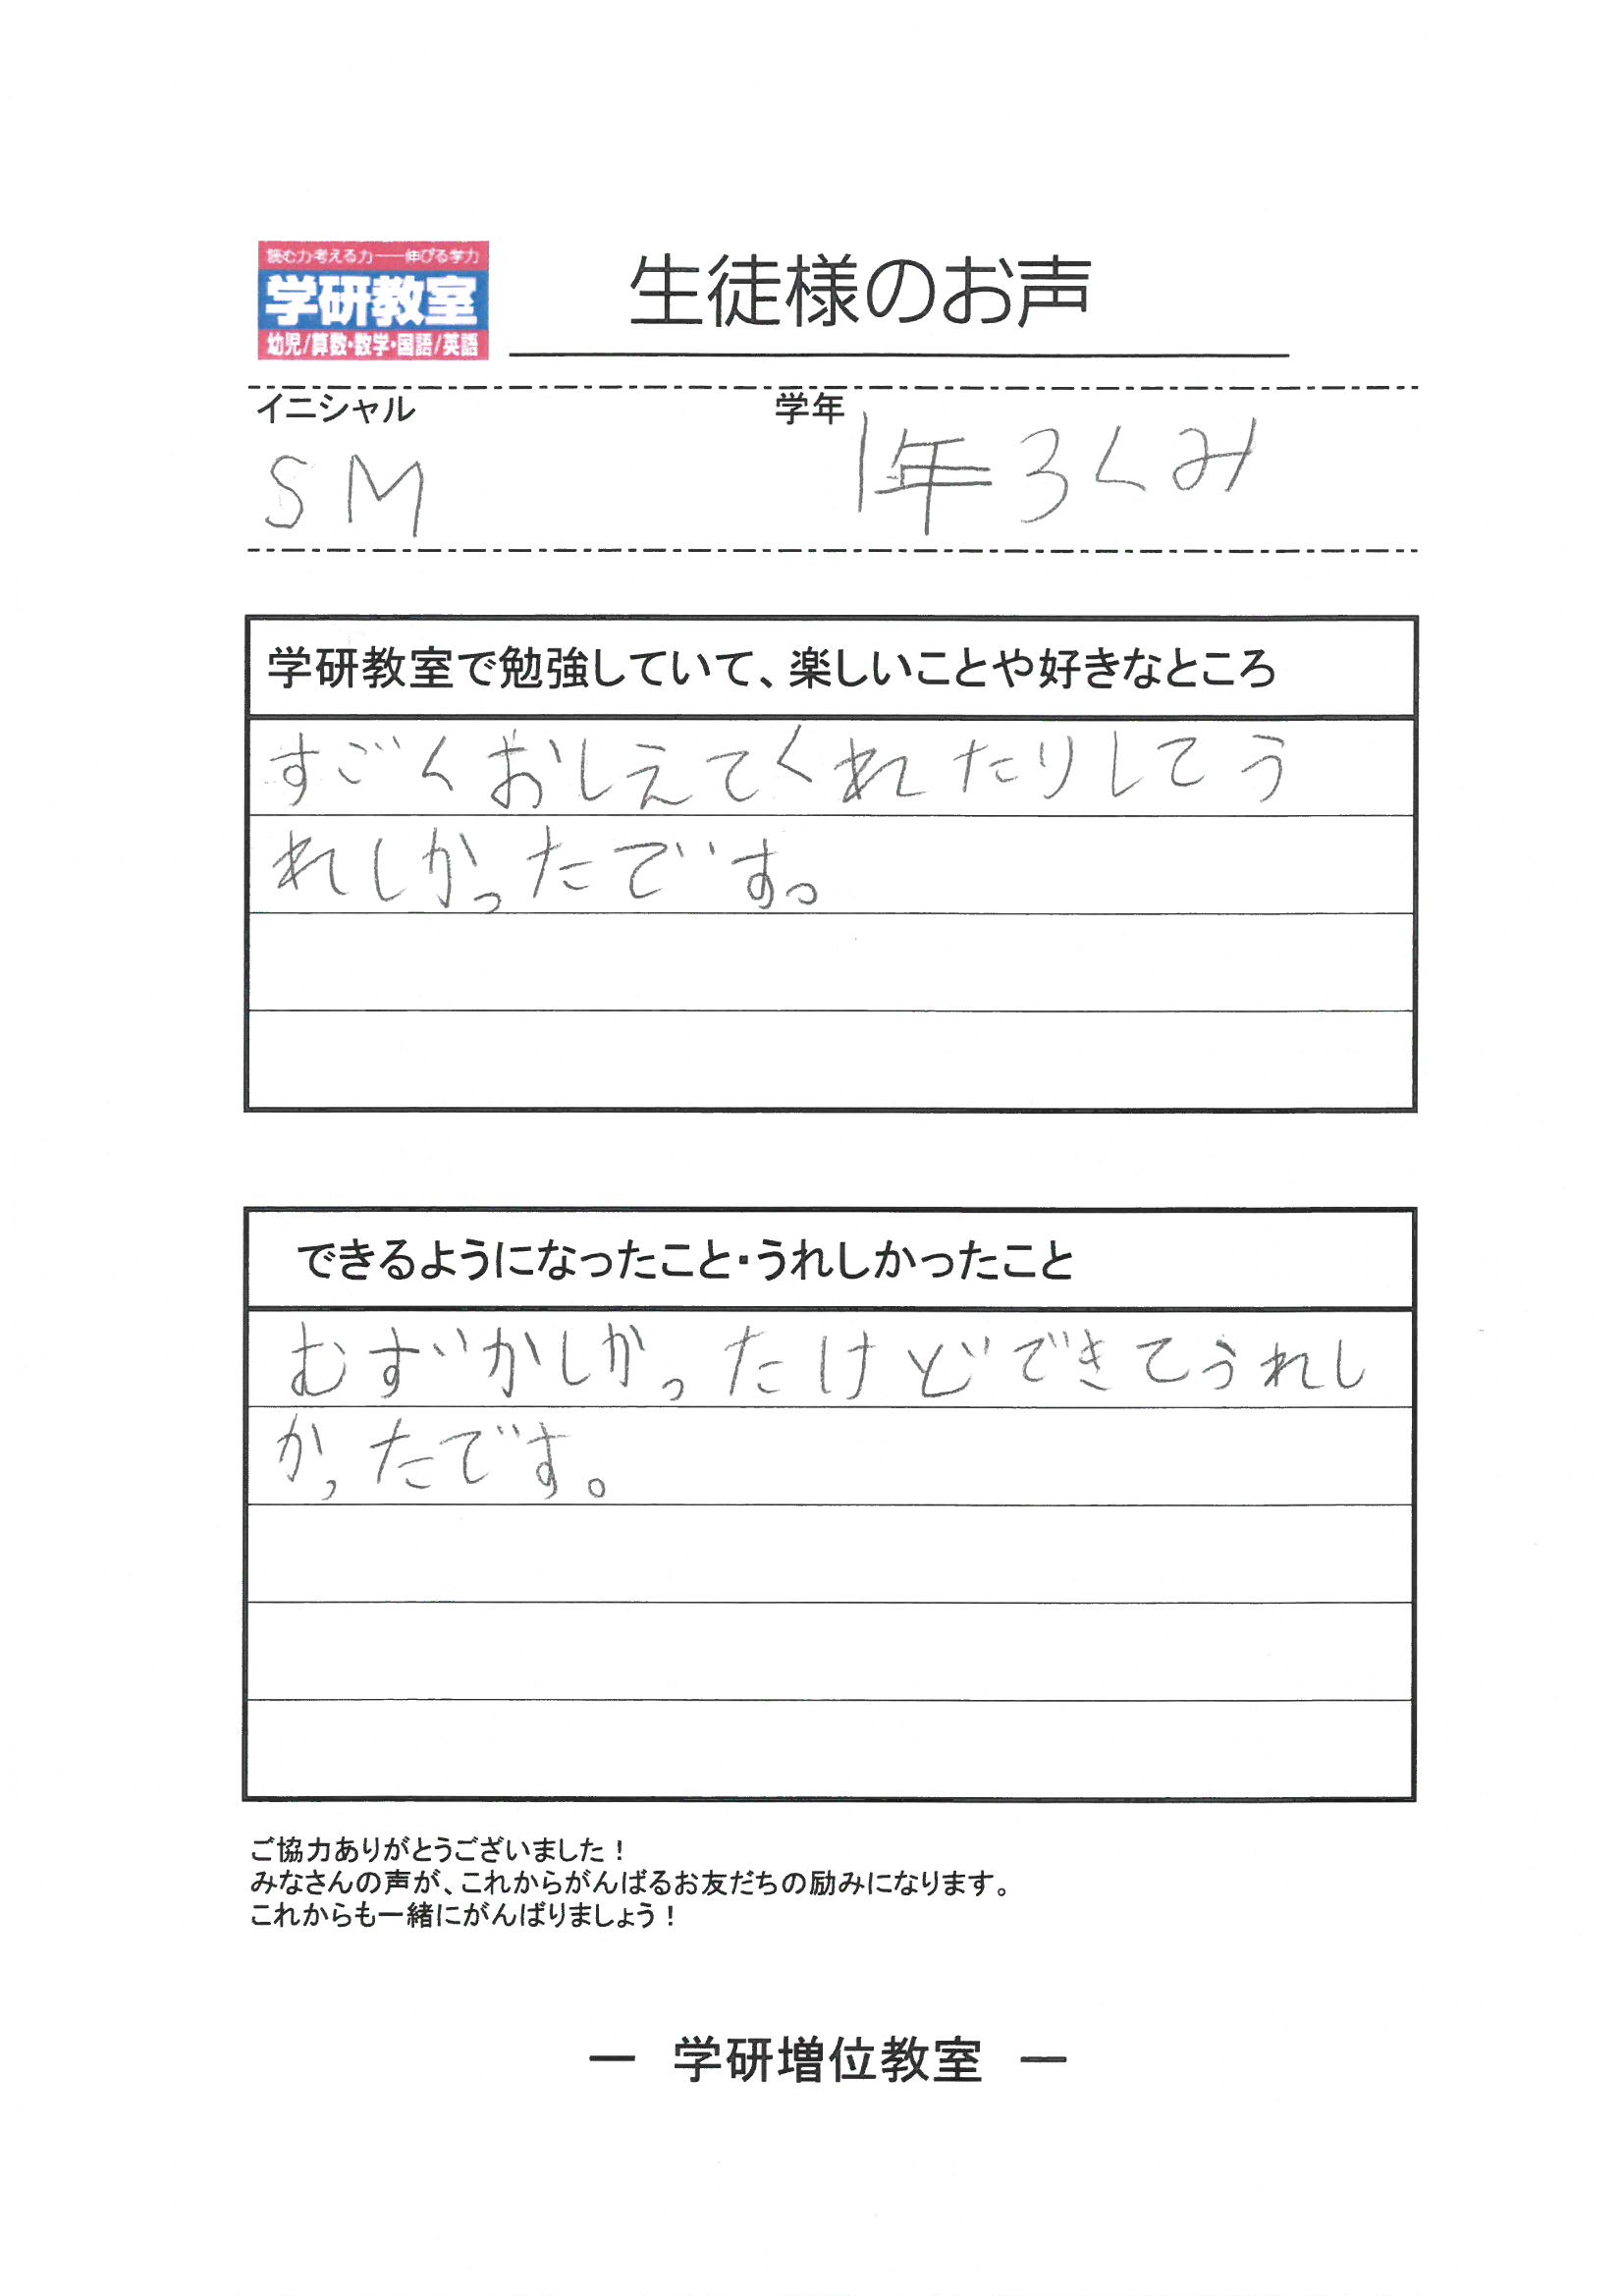 読む力考える力――伸びる学力
学研教室
幼児/算数・数学・国語/英語
生徒様のお声
イニシャル
学年
SM
1年3くみ
学研教室で勉強していて、楽しいことや好きなところ
すごくおしえてくれたりしてう
れしかったです。
できるようになったこと・うれしかったこと
むずかしかったけどできてうれし
かったです。
ご協力ありがとうございました！
みなさんの声が、これからがんばるお友だちの励みになります。
これからも一緒にがんばりましょう！
― 学研増位教室 ―